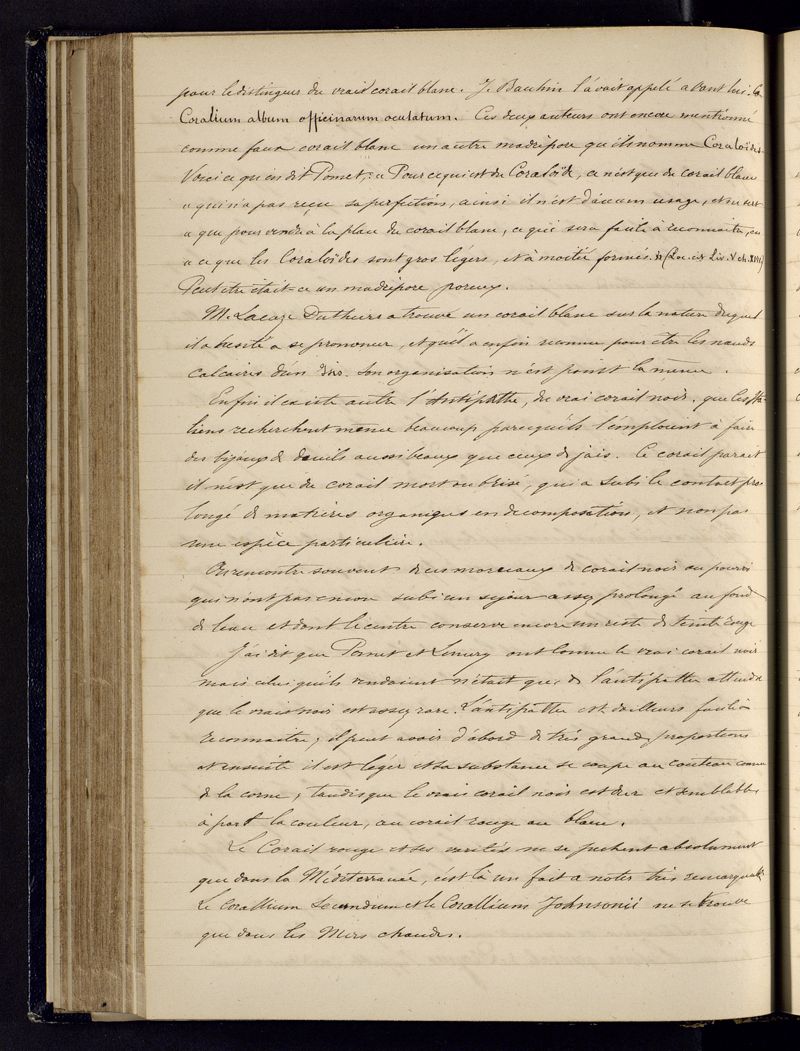 pour le distinguer du vrai corail blanc. J. Bauhin l'avait appelé avant lui. 
Coralium album officinarum oculatum. Ces deux auteurs ont encore mentionné
comme faux corail blanc un autre madrépore qu'ils nomme Coraloïdes.
Voici ce qu'en dit Pomet, : « Pour ce qui est du Coraloïde, ce n'est que du corail blanc
« qui n'a pas reçu sa perfection, ainsi il n'est d'aucun usage, et ne sert
« que pour vendre à la place du corail blanc, ce qui sera facile à reconnaitre, en
« ce que les Coraloïdes sont gros légers, et à moitié formés. » (Loc. cit Liv. V ch. XVII)
Peut etre était-ce un madrépore poreux.
M. Lacaze Duthiers a trouvé un corail blanc sur la nature duquel
il a hésité a se prononcer, et qu'il a enfin reconnu pour être les nœuds
calcaires d'un Isis. Son organisation n'est point la même.
Enfin il existe outre l'Antipathe, du vrai corail noir. que les Ita-
liens recherchent même beaucoup parcequ'ils l'emploient à faire
des bijoux de deuils aussi beaux que ceux de jais. Ce corail parait
il n'est que du corail mort ou brisé, qui a subi le contact pro
longé de matières organiques en decomposition, et non pas
une espèce particulière.
On rencontre souvent de ces morceaux de corail noir ou pourri
qui n'ont pas encore subi un séjour assez prolongé au fond
de l'eau et dont le centre conserve encore un reste de teinte rouge
J'ai dit que Pomet et Lemery ont connu le vrai corail noir
mais celui qu'ils vendaient n'était que de l'antipathe attendu
que le vrai noir est assez rare. L'antipathe est d'ailleurs facile à
reconnaitre; il peut avoir d'abord de très grandes proportions
et ensuite il est léger et sa substance se coupe au couteau comme
de la corne, tandis que le vrai corail noir est dur et semblable,
à part la couleur, au corail rouge ou blanc.
Le Corail rouge et ses variétés ne se pechent absolument
que dans la Méditerranée, c'est là un fait a noter très remarquable
Le Corallium Secundum et le Corallium Johnsonii ne se trouve
que dans les Mers chaudes.